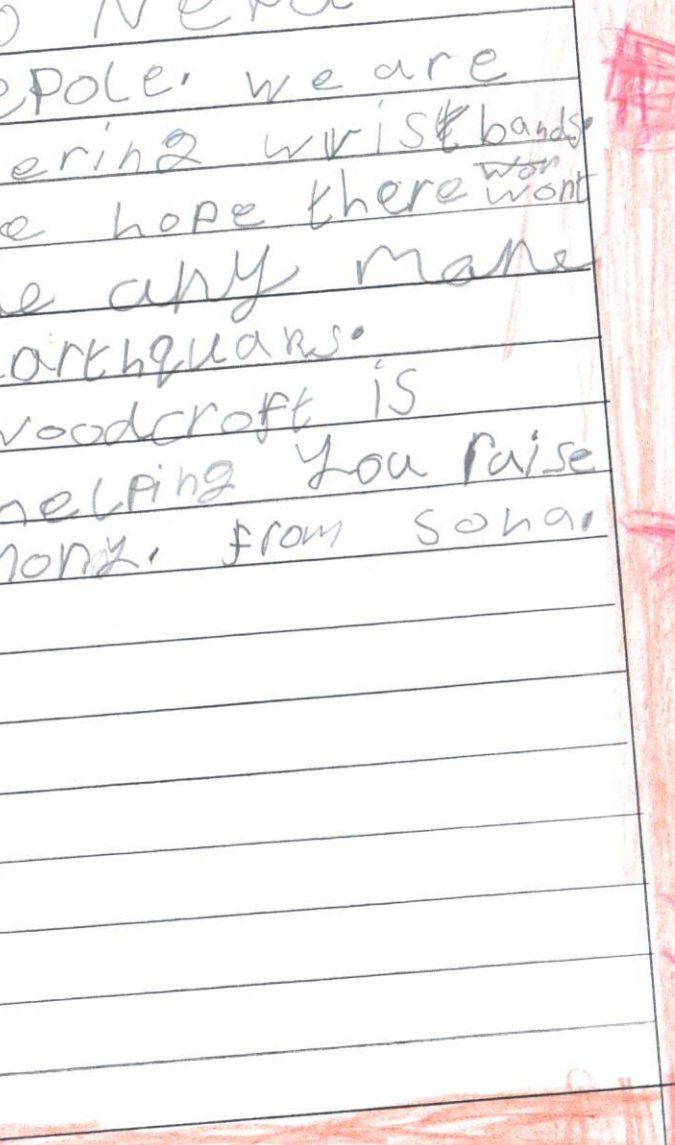 o Nepa
epole. we are
ering wrist bands.
e hope there wont
e any mane
arthquaks.
woodcroft is
helping you raise
mony. from sona.